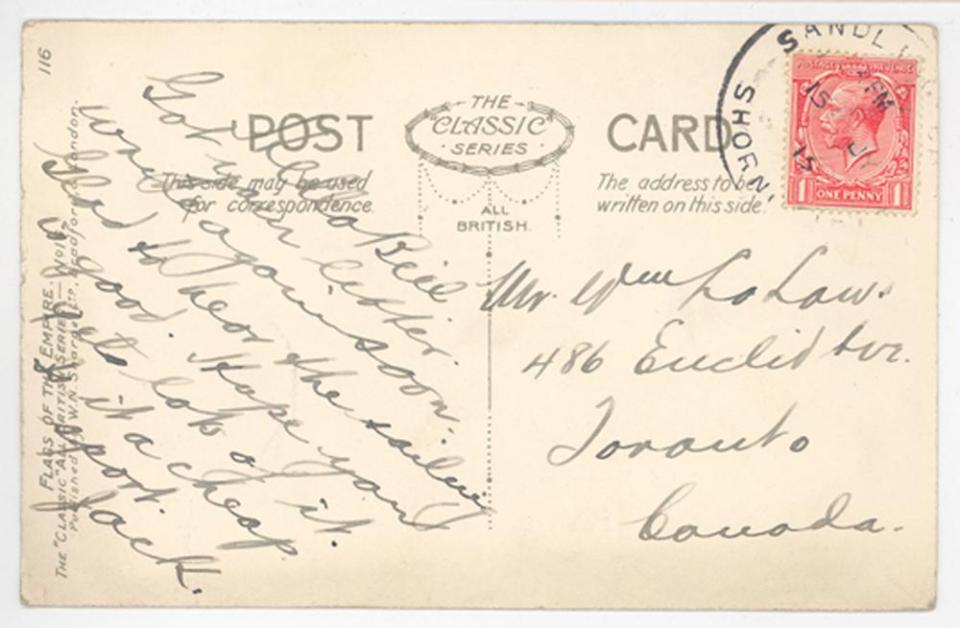 116
POST
THE
CLASSIC
SERIES
CARD
This side may be used
for correspondence.
ALL
BRITISH.
The address to be
written on this side.
SANDL
SHORN
PM
15
15
POSTAGE REVENUE
1 ONE PENNY 1
FLAGS OF THE EMPIRE.
THE "CLASSIC" ALL BRITISH SERIES
Published W.N. Sharpe LTD, Bradford London.
Hello Bill
Got your letter.
Write again soon.
Glad to hear the
is good. Hope you
get lots of it.
it a cheap
sport.
Jack.
Mr. Wm Lo Law.
486 Euclid Ave.
Toronto
Canada.